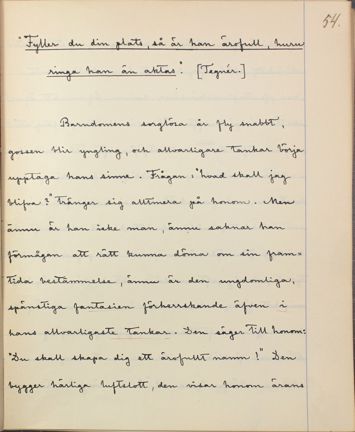 54.
"Fyller du din plats, så är han ärofull, huru
ringa han än aktas". [Tegnér.]
Barndomens sorglösa år fly snabbt,
gossen blir yngling, och allvarligare tankar börja
upptaga hans sinne. Frågan: "hvad skall jag
blifva?" tränger sig alltmera på honom. Men
ännu är han icke man, ännu saknar han
förmågan att rätt kunna döma om sin fram-
tida bestämmelse, ännu är den ungdomliga,
spänstiga fantasien förherrskande äfven i
hans allvarligaste tankar. Den säger till honom:
"Du skall skapa dig ett ärofullt namn!" Den
bygger härliga luftslott, den visar honom ärans